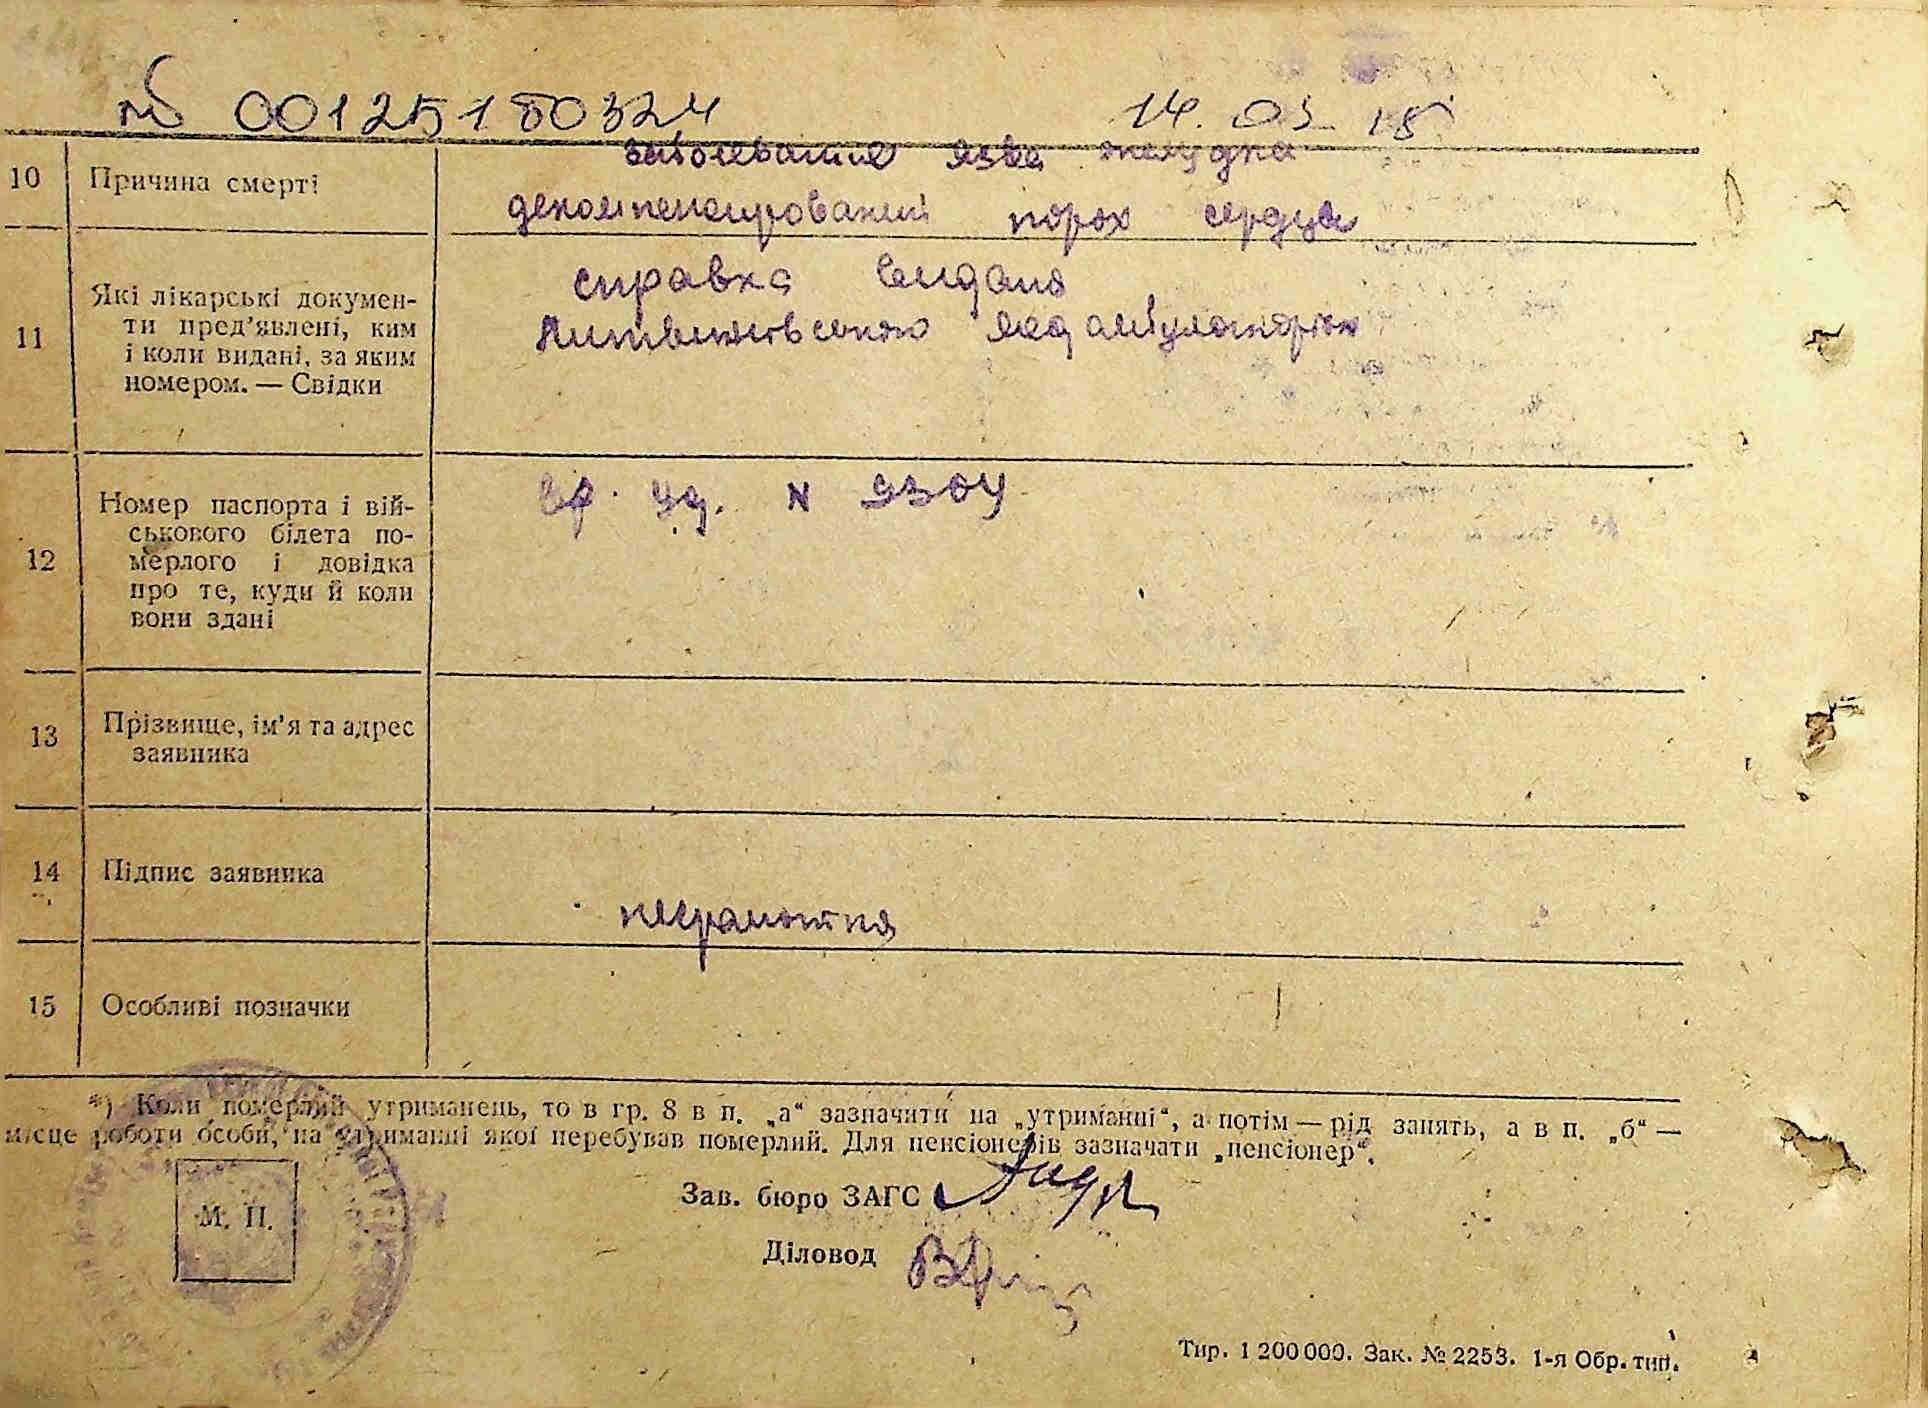 № 00125180324 14.03.18
10 Причина смерті заболевание язва желудка
декомпенсирований порох сердца
11 Які лікарські докумен-
ти пред’явлені, ким
і коли видані, за яким
номером. — Свідки
справка видана
амбулаторією
12 Номер паспорта і вій-
ськового білета по-
мерлого і довідка
про те, куди й коли
вони здані
вр. уд. N 9304
13 Прізвище, ім’я та адрес
заявника
14 Підпис заявника
неграмотна
15 Особливі позначки
*) Коли померлий утриманець, то в гр. 8 в п. „а“ зазначити на „утриманні“, а потім — рід занять, а в п. „б“ —
місце роботи особи, на утриманні якої перебував померлий. Для пенсіонерів зазначати „пенсіонер“.
М. П.
Зав. бюро ЗАГС
Діловод
Тир. 1 200 000. Зак. № 2253. 1-я Обр. тип.